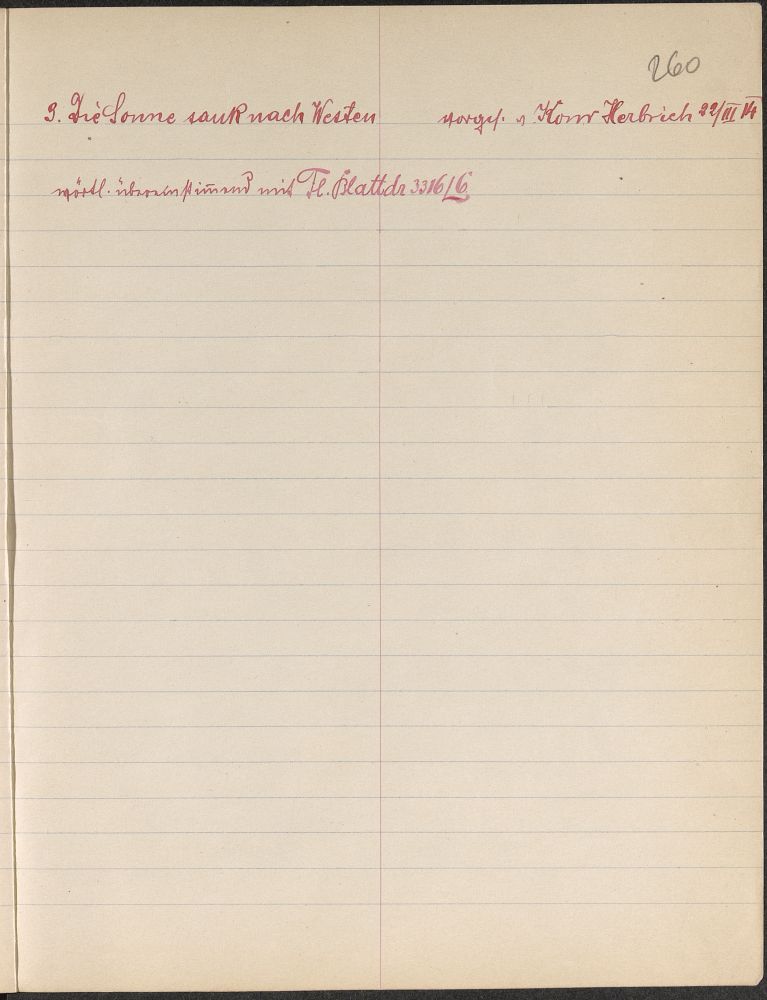 260
9. Die Sonne sank nach Westen vorges. v Konr Herbrich 22/III 14
wörtl. übereinstim̅end mit Fl. Blattdr 3316/6